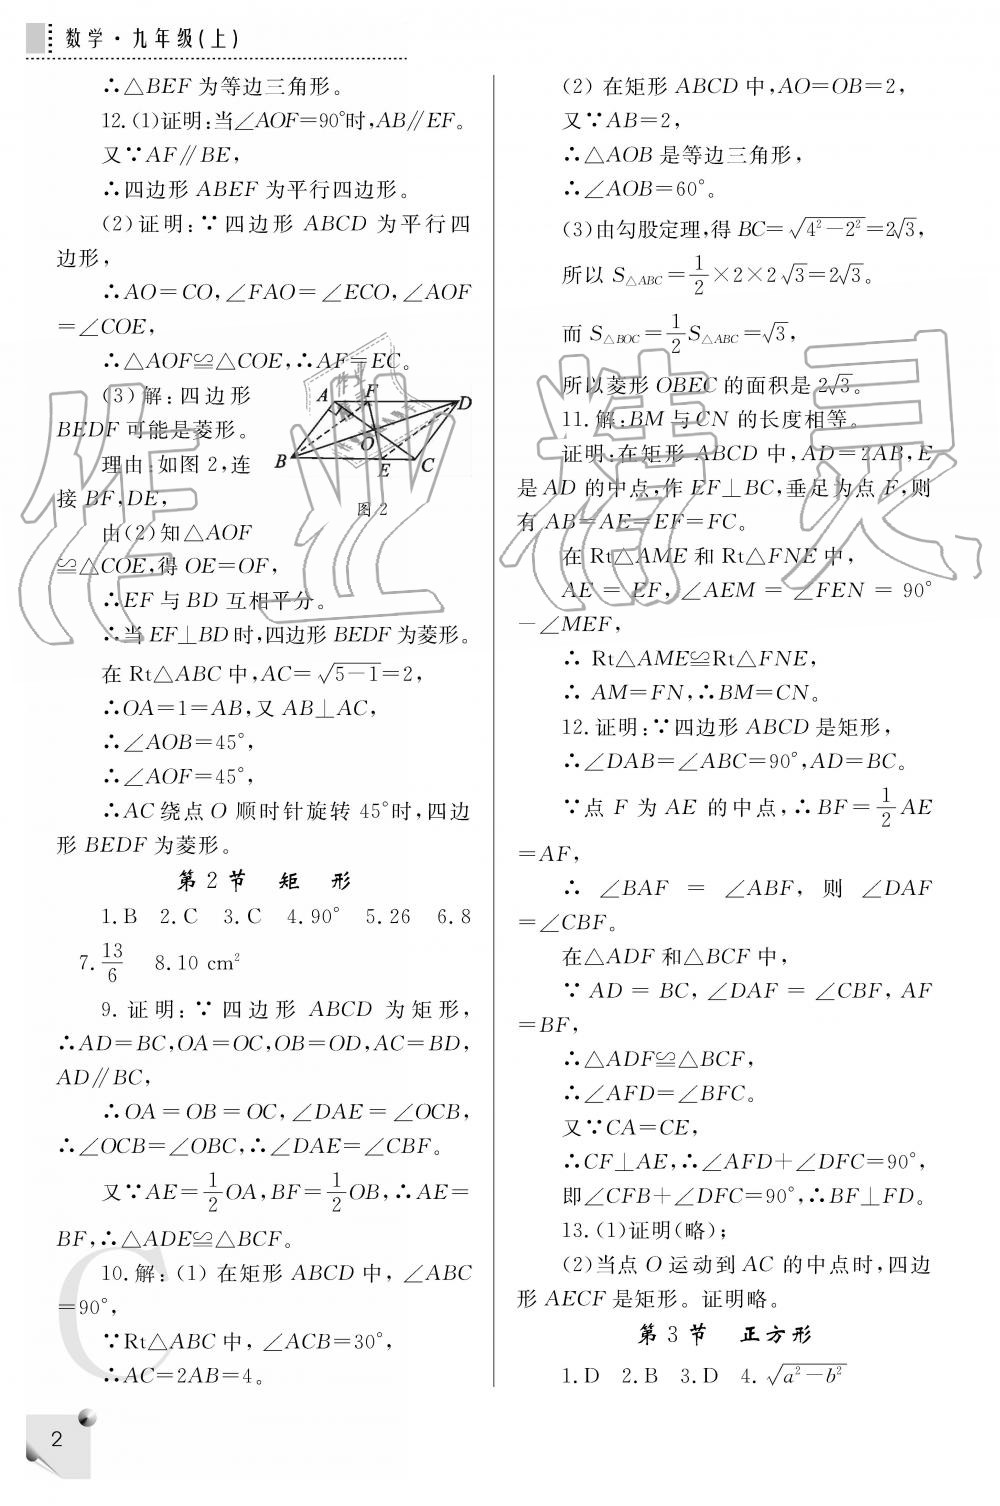 数学·九年级(上)
∴△BEF 为等边三角形。
12.(1)证明:当∠AOF=90°时,AB∥EF。
又∵AF∥BE,
∴四边形 ABEF 为平行四边形。
(2)证明:∵四边形 ABCD 为平行四
边形,
∴AO=CO,∠FAO=∠ECO,∠AOF
=∠COE,
∴△AOF≌△COE,∴AF=EC。
(3)解:四边形
BEDF 可能是菱形。
理由:如图 2,连
接 BF,DE,
由(2)知△AOF
≌△COE,得 OE=OF,
∴EF 与 BD 互相平分。
∴当 EF⊥BD 时,四边形 BEDF 为菱形。
在 Rt△ABC 中,AC=√(5-1)=2,
∴OA=1=AB,又 AB⊥AC,
∴∠AOB=45°,
∴∠AOF=45°,
∴AC 绕点 O 顺时针旋转 45°时,四边
形 BEDF 为菱形。
A F D
O
B E C
图 2
第 2 节 矩 形
1.B 2.C 3.C 4.90° 5.26 6.8
7.13/6 8.10 cm²
9.证明:∵四边形 ABCD 为矩形,
∴AD=BC,OA=OC,OB=OD,AC=BD,
AD∥BC,
∴OA=OB=OC,∠DAE=∠OCB,
∴∠OCB=∠OBC,∴∠DAE=∠CBF。
又∵AE=1/2OA,BF=1/2OB,∴AE=
BF,∴△ADE≌△BCF。
10.解:(1) 在矩形 ABCD 中,∠ABC
=90°,
∵Rt△ABC 中,∠ACB=30°,
∴AC=2AB=4。
(2) 在矩形 ABCD 中,AO=OB=2,
又∵AB=2,
∴△AOB 是等边三角形,
∴∠AOB=60°。
(3)由勾股定理,得 BC=√(4²-2²)=2√3,
所以 S△ABC=1/2×2×2√3=2√3。
而 S△BOC=1/2S△ABC=√3,
所以菱形 OBEC 的面积是 2√3。
11.解:BM 与 CN 的长度相等。
证明:在矩形 ABCD 中,AD=2AB,E
是 AD 的中点,作 EF⊥BC,垂足为点 F,则
有 AB=AE=EF=FC。
在 Rt△AME 和 Rt△FNE 中,
AE = EF,∠AEM = ∠FEN = 90°
-∠MEF,
∴ Rt△AME≌Rt△FNE,
∴ AM=FN,∴BM=CN。
12.证明:∵四边形 ABCD 是矩形,
∴∠DAB=∠ABC=90°,AD=BC。
∵点 F 为 AE 的中点,∴BF=1/2AE
=AF,
∴ ∠BAF = ∠ABF, 则 ∠DAF
=∠CBF。
在△ADF 和△BCF 中,
∵ AD = BC,∠DAF = ∠CBF,AF
=BF,
∴△ADF≌△BCF,
∴∠AFD=∠BFC。
又∵CA=CE,
∴CF⊥AE,∴∠AFD+∠DFC=90°,
即∠CFB+∠DFC=90°,∴BF⊥FD。
13.(1)证明(略);
(2)当点 O 运动到 AC 的中点时,四边
形 AECF 是矩形。证明略。
第 3 节 正方形
1.D 2.B 3.D 4.√(a²-b²)
2
作业精灵
C